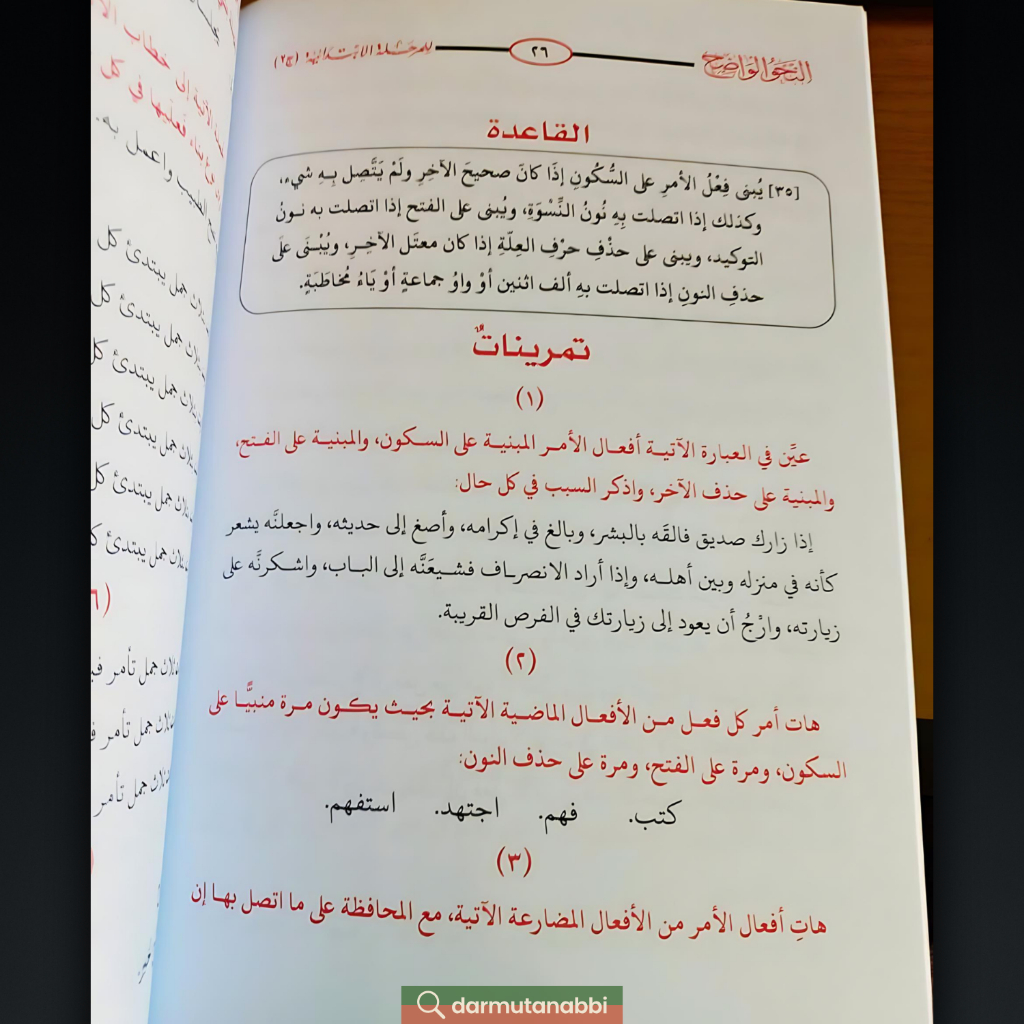 النحو الواضح
٢٦
للمرحلة الابتدائية (ج٢)
القاعدة
[٣٥] يُبنى فِعْلُ الأمرِ على السُّكُونِ إذَا كانَ صحيحَ الآخِرِ ولَمْ يَتَّصِل بِـهِ شيء،
وكذلك إذا اتصلت بِهِ نُونُ النِّسْوَةِ، ويُبنى على الفتح إذا اتصلت به نـونُ
التوكيد، ويبنى على حذْفِ حرْفِ العِلّةِ إذا كان معتَل الآخِـرِ، ويُبْنَى علَى
حذفِ النونِ إذا اتصلت بهِ ألف اثنين أوْ واوُ جماعةٍ أوْ يَاءُ مُخاطَبَةٍ.
تمرينـاتٌ
(١)
عيِّن في العبارة الآتيـة أفعـال الأمـر المبنيـة على السـكون، والمبنية على الفتـح،
والمبنية على حذف الآخر، واذكر السبب في كل حال:
إذا زارك صديق فالقَه بالبشر، وبالغ في إكرامه، وأصغ إلى حديثه، واجعلنَّه يشعر
كأنه في منزله وبين أهلـه، وإذا أراد الانصرـاف فشـيعَنَّه إلى البـاب، واشـكرنَّه على
زيارته، وارْجُ أن يعود إلى زيارتك في الفرص القريبة.
(٢)
هات أمر كل فعـل مـن الأفعـال الماضـية الآتيـة بحيـث يكـون مـرة منبيًّـا على
السكون، ومرة على الفتح، ومرة على حذف النون:
كتب. فهم. اجتهد. استفهم.
(٣)
هاتِ أفعال الأمر من الأفعال المضارعة الآتية، مع المحافظة على ما اتصل بهـا إن
darmutanabbi